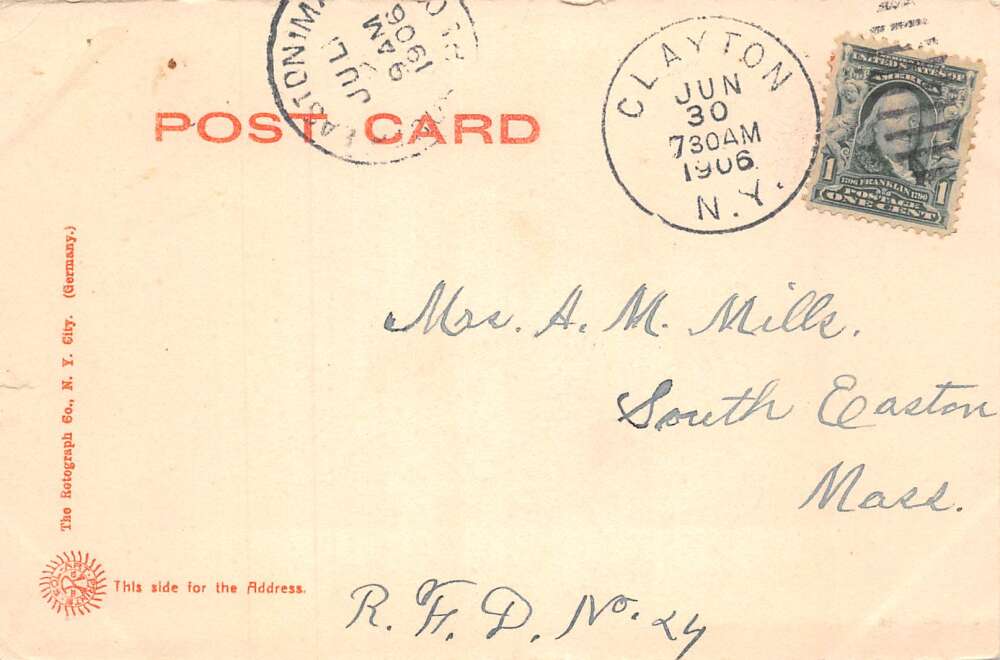 EASTON, MA
JUL
6 AM
1906
CLAYTON
JUN
30
730AM
1906
N.Y.
UNITED STATES OF
AMERICA
1 1706 FRANKLIN 1790 1
POSTAGE
ONE CENT
POST CARD
Mrs. A. M. Mills.
South Easton
Mass.
R. F. D. No. 24
The Rotograph Co., N. Y. City. (Germany.)
This side for the Address.